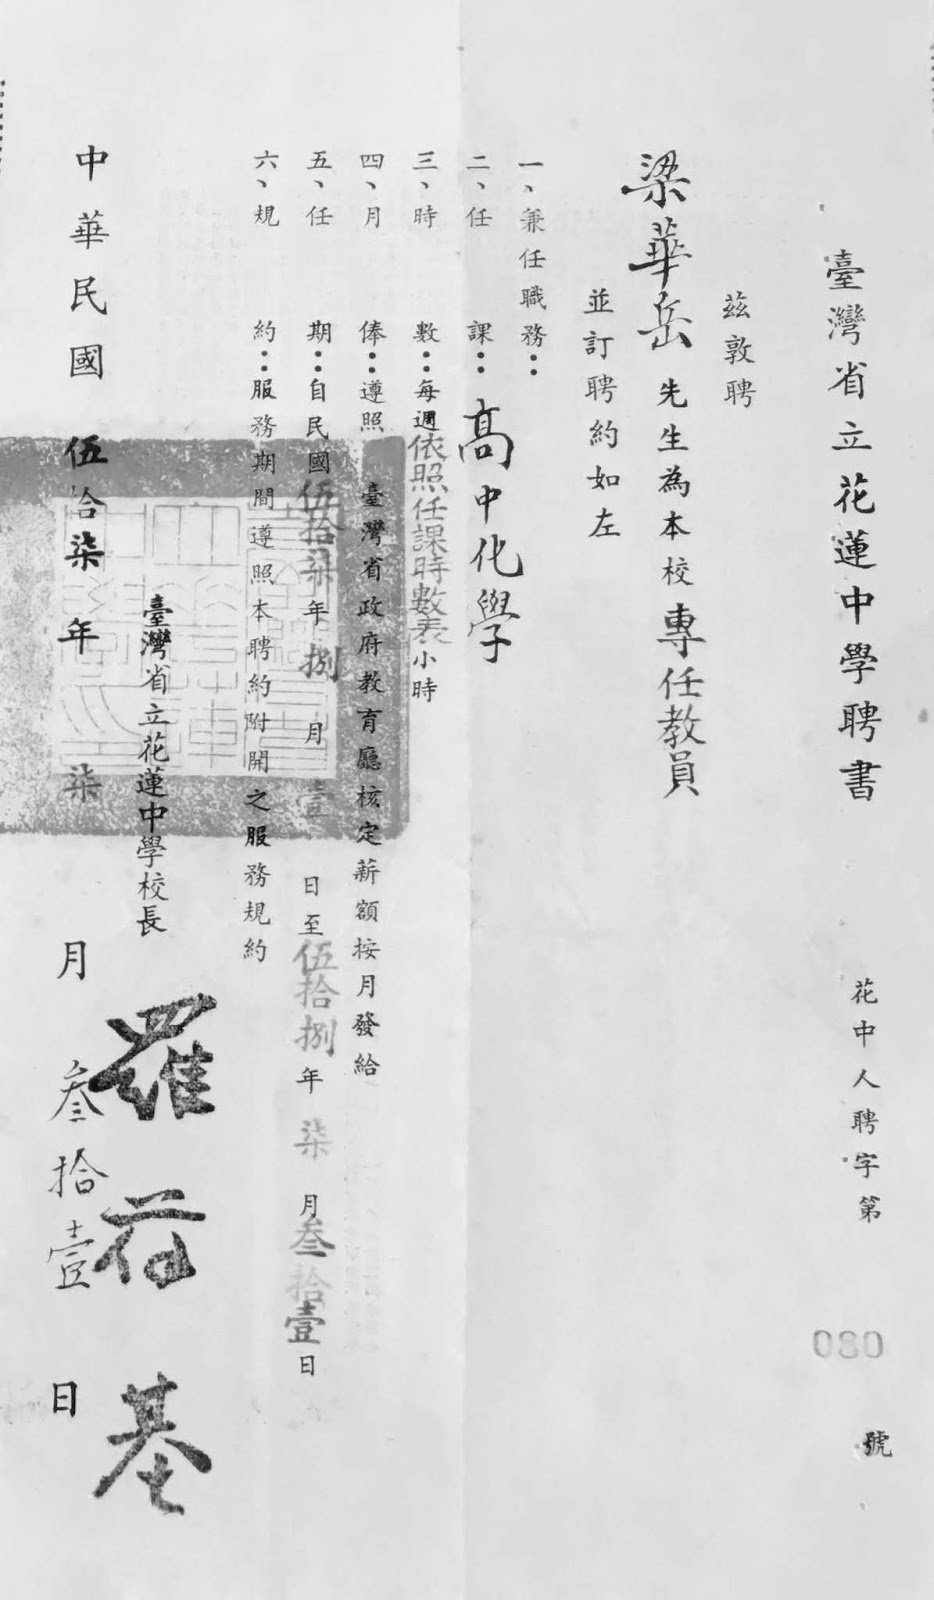 臺灣省立花蓮中學聘書
花中人聘字第 080 號
茲敦聘
梁華岳先生為本校專任教員
並訂聘約如左
一、兼任職務：
二、任課：高中化學
三、時數：每週依照任課時數表小時
四、月俸：遵照臺灣省政府教育廳核定薪額按月發給
五、任期：自民國伍拾柒年捌月壹日至伍拾捌年柒月叁拾壹日
六、規約：服務期間遵照本聘約附開之服務規約
臺灣省立花蓮中學校長 羅符基
中華民國伍拾柒年柒月叁拾壹日